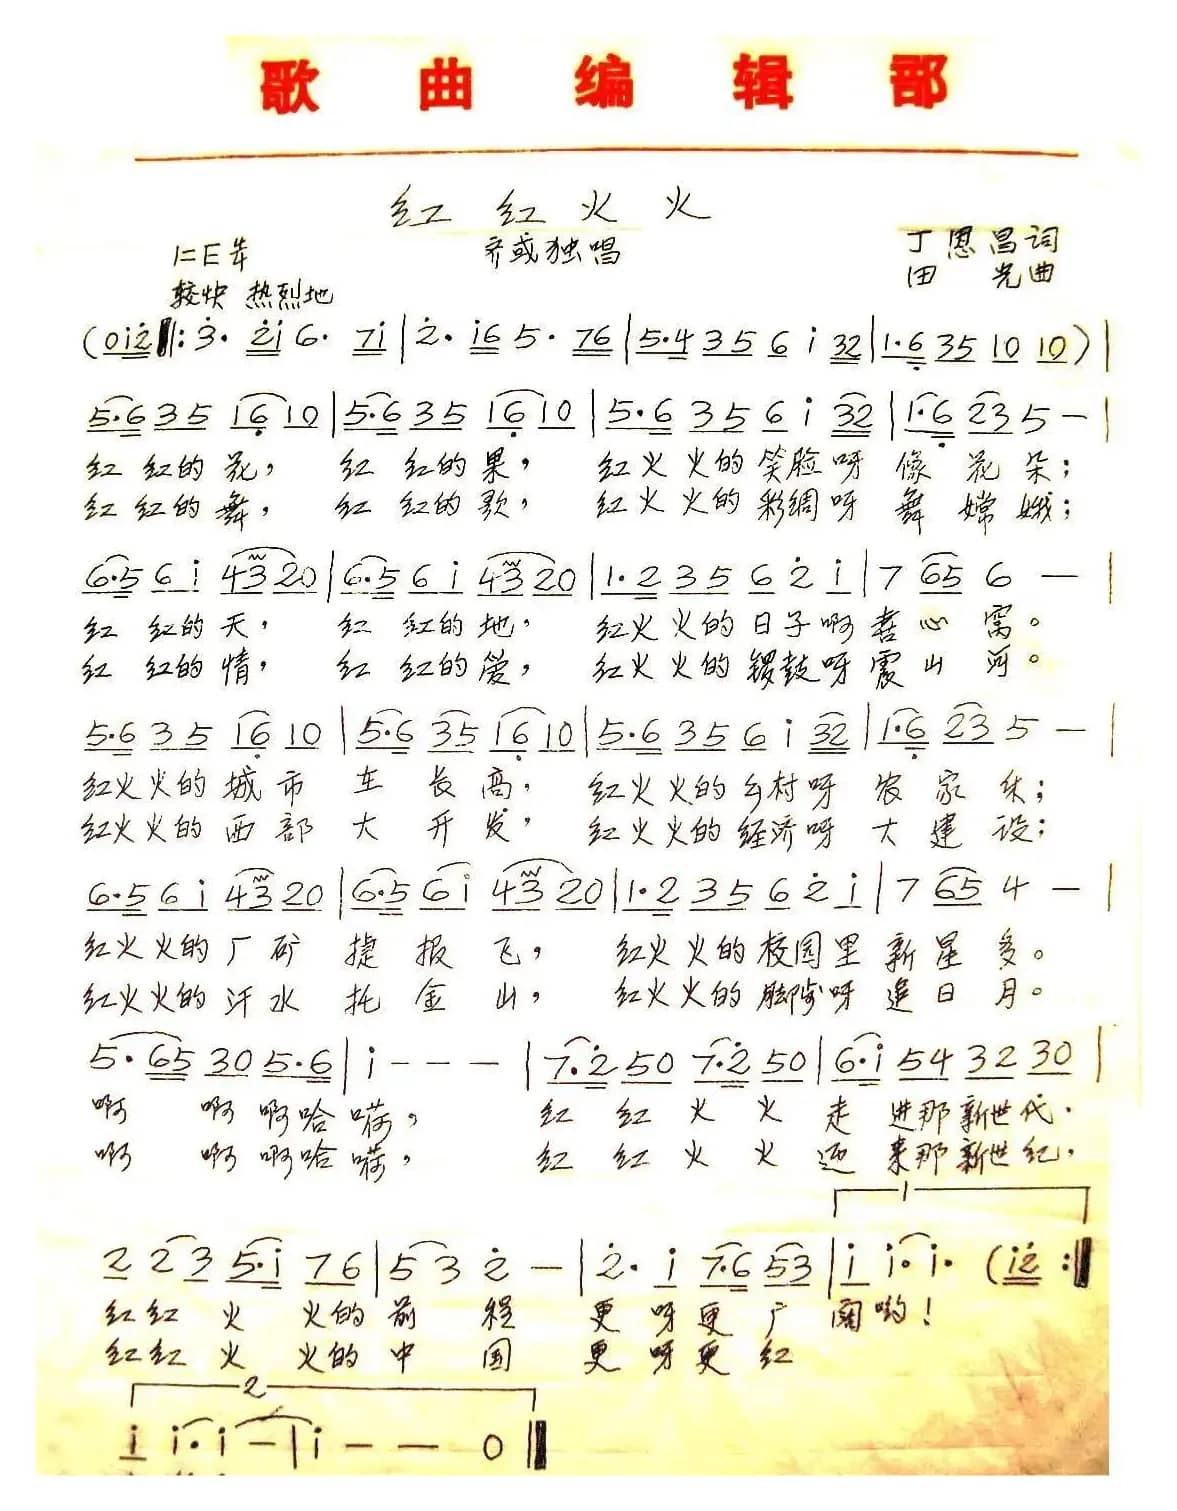 歌曲编辑部
红红火火
齐或独唱
丁恩昌词
田光曲
1=E
较快 热烈地
(012‖:3· 21 6· 71|2· 16 5· 76|5·4 35 6 1 32|1·6 35 10 10)|
5·6 35 16 10|5·6 35 16 10|5·6 35 6 1 32|1·6 23 5 —|
红 红的花， 红 红的果， 红火火的笑脸呀 像 花 朵；
红 红的舞， 红 红的歌， 红火火的彩绸呀 舞 嫦 娥；
6·5 6 1 43 20|6·5 6 1 43 20|1·2 35 6 2 1|7 65 6 —|
红 红的天， 红 红的地， 红火火的日子啊 喜 心 窝。
红 红的情， 红 红的爱， 红火火的锣鼓呀 震 山 河。
5·6 35 16 10|5·6 35 16 10|5·6 35 6 1 32|1·6 23 5 —|
红火火的城市 车 长 高， 红火火的乡村呀 农 家 乐；
红火火的西部 大 开 发， 红火火的经济呀 大 建 设；
6·5 6 1 43 20|6·5 6 1 43 20|1·2 35 6 2 1|7 65 4 —|
红火火的厂矿 捷 报 飞， 红火火的校园里 新 星 多。
红火火的汗水 托 金 山， 红火火的脚步呀 追 日 月。
5· 65 30 5·6|1 — — —|7·2 50 7·2 50|6·1 54 32 30|
啊 啊 啊哈 嗬， 红 红 火 火 走 进那新世代，
啊 啊 啊哈 嗬， 红 红 火 火 迎 来那新世纪，
1
2 23 5·1 76|5 3 2 —|2· 1 7·6 53|1 1· 1· (12:‖
红红 火 火的 前 程 更 呀更 广 阔哟！
红红 火 火的 中 国 更 呀更 红
2
1 1· 1 —|1 — — 0‖